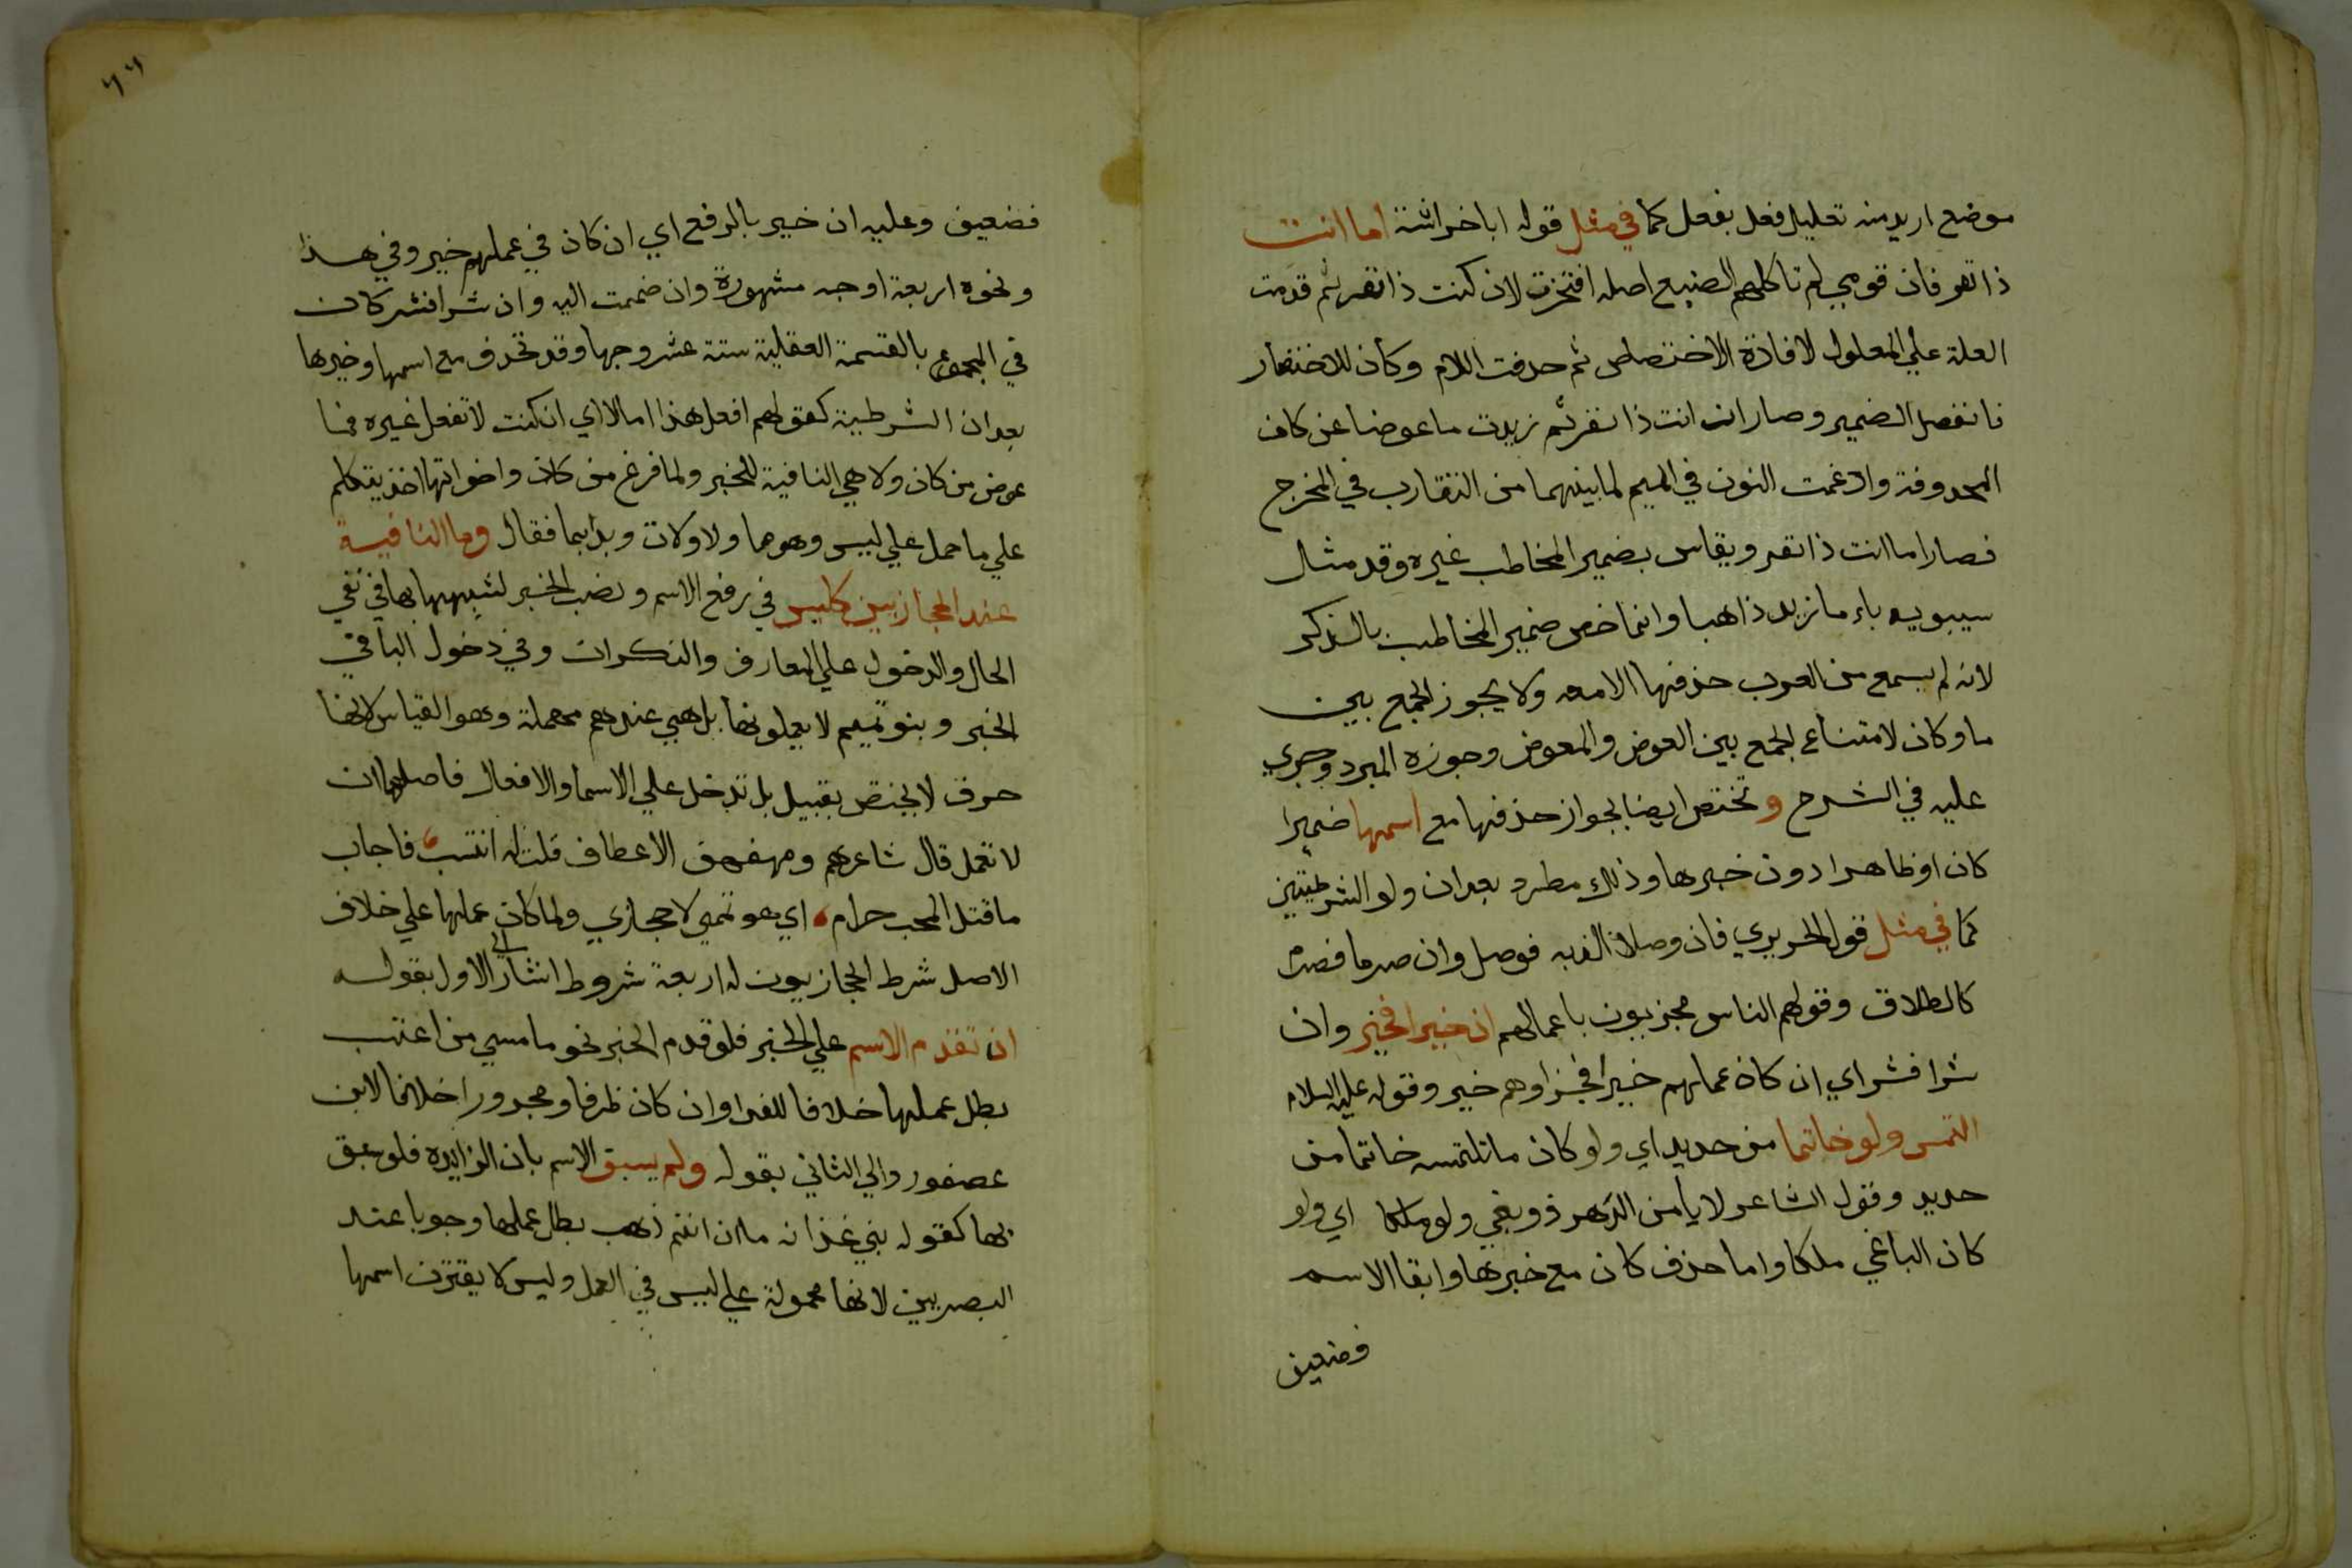 موضع اريد منه تعليل فعل بفعل كما في مثل قوله ابا خراشة اما انت
ذا نفر فان قومي لم تاكلهم الضبع اصله افتخرت لان كنت ذا نفر ثم قدمت
العلة علي المعلول لافادة الاختصاص ثم حدفت اللام وكان للاختصار
فانفصل الضمير وصار ان انت ذا نفر ثم زيدت ما عوضا عن كان
المحدوفة وادغمت النون في الميم لما بينهما من التقارب في المخرج
فصار اما انت ذا نفر ويقاس بضمير المخاطب غيره وقد مثال
سيبويه باء ما زيد ذاهبا وانما خص ضمير المخاطب بالذكر
لانه لم يسمع من العرب حذفها الا معه ولا يجوز الجمع بين
ما وكان لامتناع الجمع بين العوض والمعوض وجوزه المبرد وجري
عليه في الشرح و تختص ايضا بجواز حذفها مع اسمها ضميرا
كان او ظاهرا دون خبرها وذلك مطرد بعد ان ولو الشرطيتين
كما في مثل قول الحريري فان وصلا الذ به فوصل وان صرما فصرم
كالطلاق وقولهم الناس مجزيون باعمالهم ان خيرا فخير وان
شرا فشر اي ان كان عملهم خيرا فجزاوهم خير وقوله عليه السلام
التمس ولو خاتما من حديد اي ولو كان ما تلتمسه خاتما من
حديد وقول الشاعر لا يأمن الدهر ذو بغي ولو ملكا اي ولو
كان الباغي ملكا واما حذف كان مع خبرها وابقا الاسم
فضعيف
٦٦
فضعيف وعليه ان خير بالرفع اي ان كان في عملهم خير وفي هذا
ونحوه اربعة اوجه مشهورة وان ضممت اليه وان شرا فشر كان
في المجموع بالقسمة العقلية ستة عشر وجها وقد تحذف مع اسمها وخبرها
بعد ان الشرطية كقولهم افعل هذا اما لا اي ان كنت لا تفعل غيره فما
عوض من كان ولا هي النافية للخبر ولما فرغ من كان واخواتها اخذ يتكلم
علي ما حمل علي ليس وهو ما ولا ولات وبدا بما فقال وما النافية
عند الحجازيين كليس في رفع الاسم ونصب الخبر لشبهها بها في نفي
الحال والدخول علي المعارف والنكرات وفي دخول البا في
الخبر وبنو تميم لا يعملونها بل هي عندهم مهملة وهو القياس لانها
حرف لا يختص بقبيل بل تدخل علي الاسما والافعال فاصلها ان
لا تعمل قال شاعرهم ومهفهف الاعطاف قلت له انتسب فاجاب
ما قتل المحب حرام اي هو تميمي لا حجازي ولما كان عملها علي خلاف
الاصل شرط الحجازيون له اربعة شروط اشار الي الاول بقوله
ان تقدم الاسم علي الخبر فلو قدم الخبر نحو ما مسي من اعتب
بطل عملها خلافا للفرا وان كان ظرفا ومجرورا خلافا لابن
عصفور والي الثاني بقوله ولم يسبق الاسم بان الزايدة فلو سبق
بها كقوله بني غدانة ما ان انتم ذهب بطل عملها وجوبا عند
البصريين لانها محمولة علي ليس في العمل وليس لا يقترن اسمها